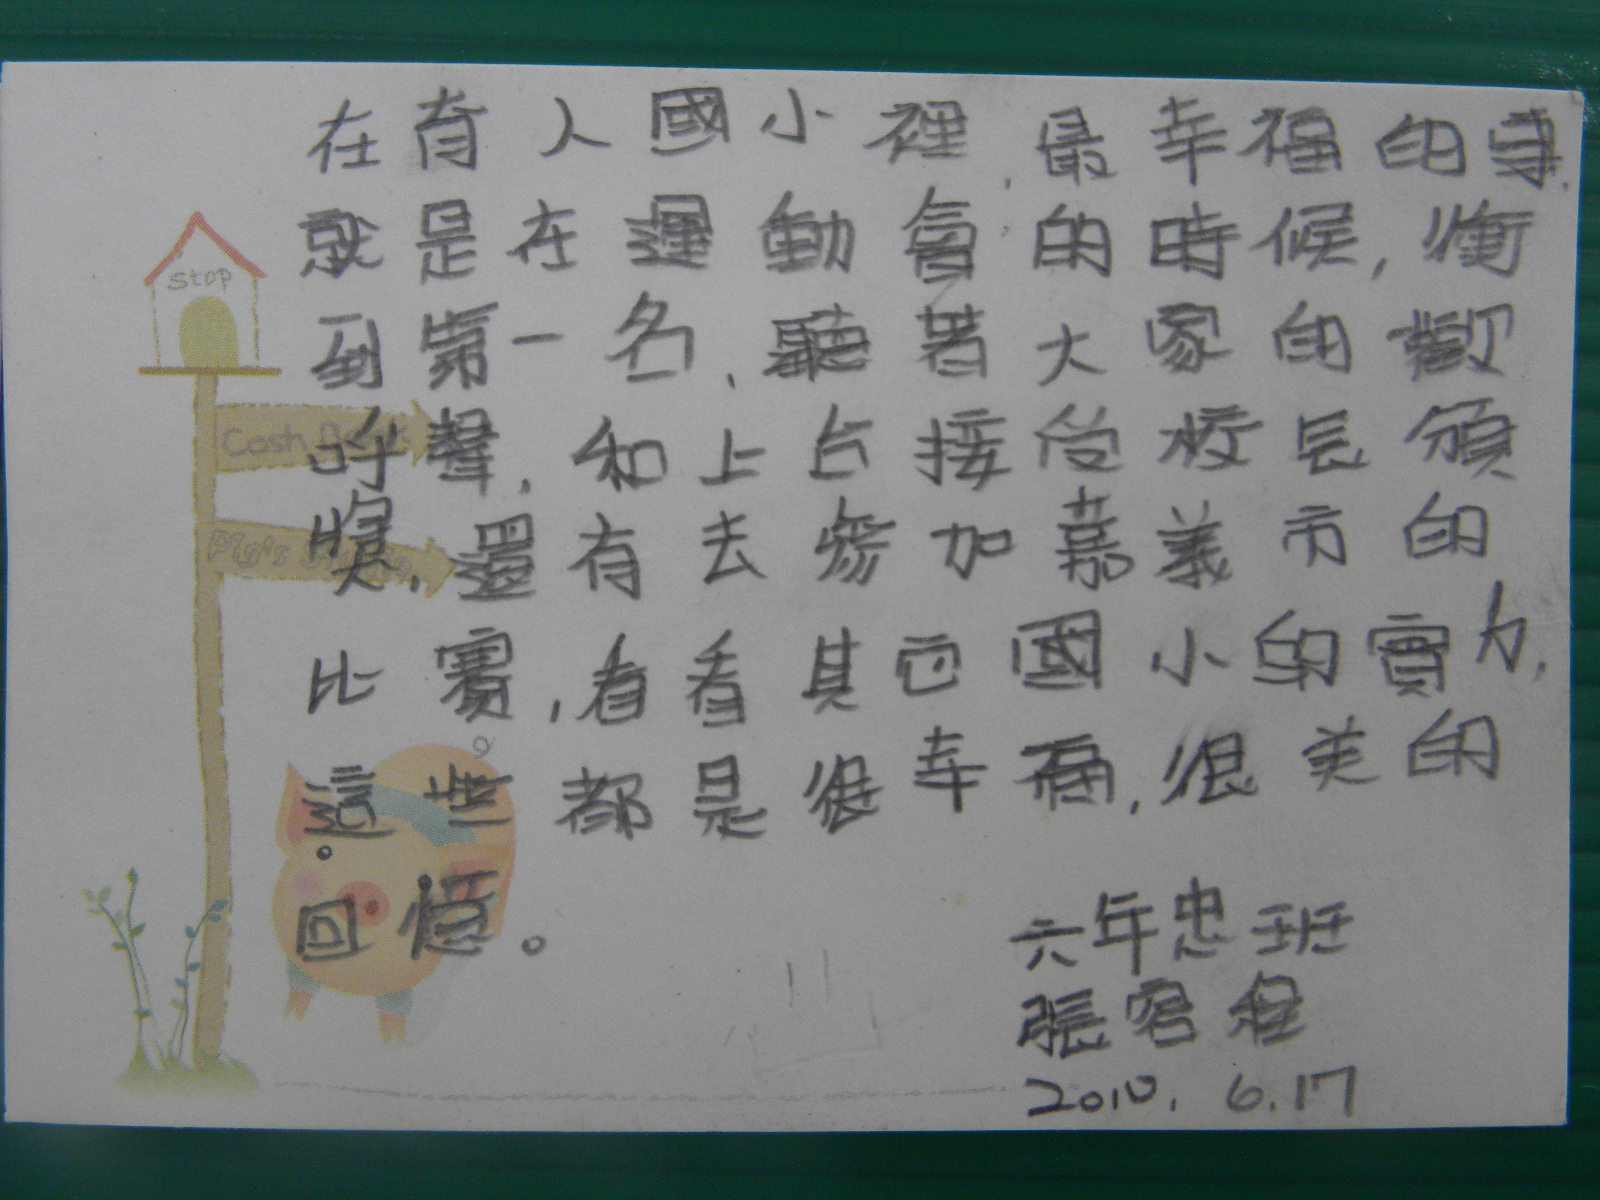 在育人國小裡,最幸福的事,
就是在運動會的時候,衝
到第一名,聽著大家的歡
呼聲,和上台接受校長頒
獎,還有去參加嘉義市的
比賽,看看其它國小的實力,
這些都是很幸福,很美的
回憶。
六年忠班
張容
2010. 6.17
stop
Cash
Pig's